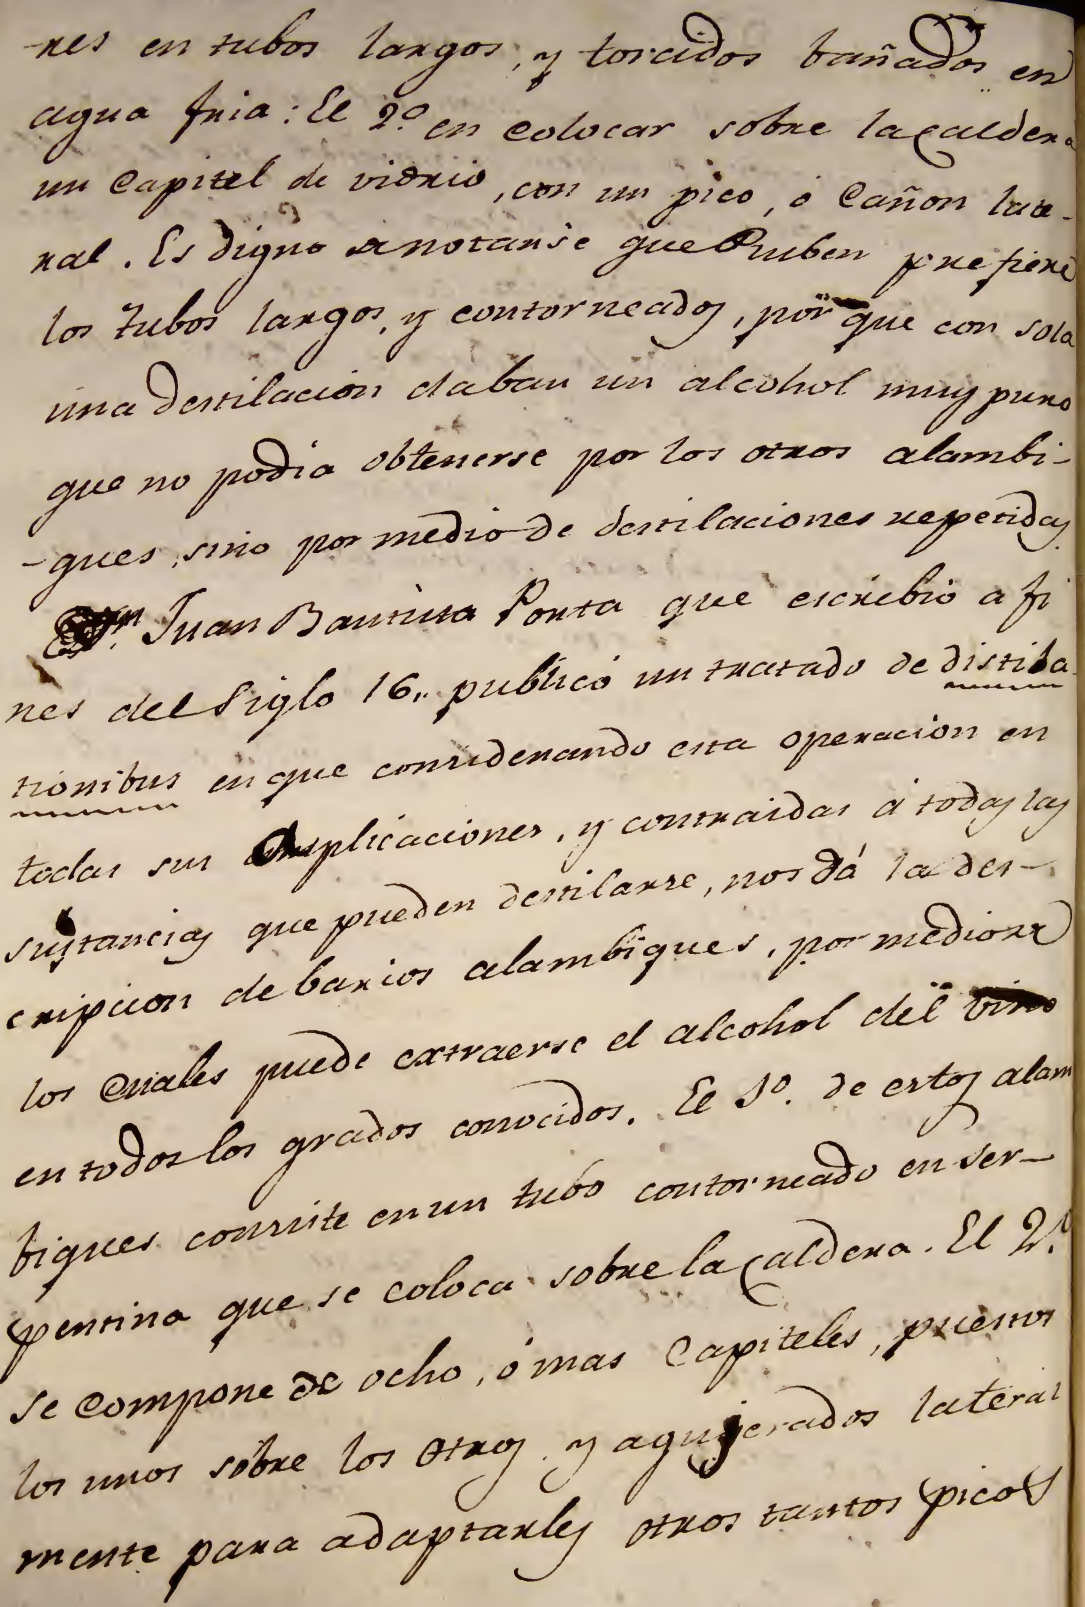 -res en tubos largos, y torcidos bañados en
agua fria: El 2º. en colocar sobre la Caldera
un Capitel de vidrio, con un pico, ó Cañon late-
ral. Es digno anotarse que Ruben prefiere
los tubos largos, y contorneados, por que con sola
una destilacion daban un alcohol muy puro
que no podia obtenerse por los otros alambi-
-ques, sino por medio de destilaciones repetidas.
Juan Bautista Porta que escribio a fi
nes del Siglo 16,, publicó un tratado de distila
tionibus en que considerando esta operacion en
todas sus aplicaciones, y contraidas á todas las
sustancias que pueden destilarse, nos dá la des-
cripcion de barios alambiques, por medio de
los Cuales puede extraerse el alcohol del vino
en todos los grados conocidos. El 1º. de estos alam
biques consiste en un tubo contorneado en ser-
pentina que se coloca sobre la Caldera. El 2º.
se compone de ocho, ó mas Capiteles, puestos
los unos sobre los otros y agujerados lateral
mente para adaptarles otros tantos picos